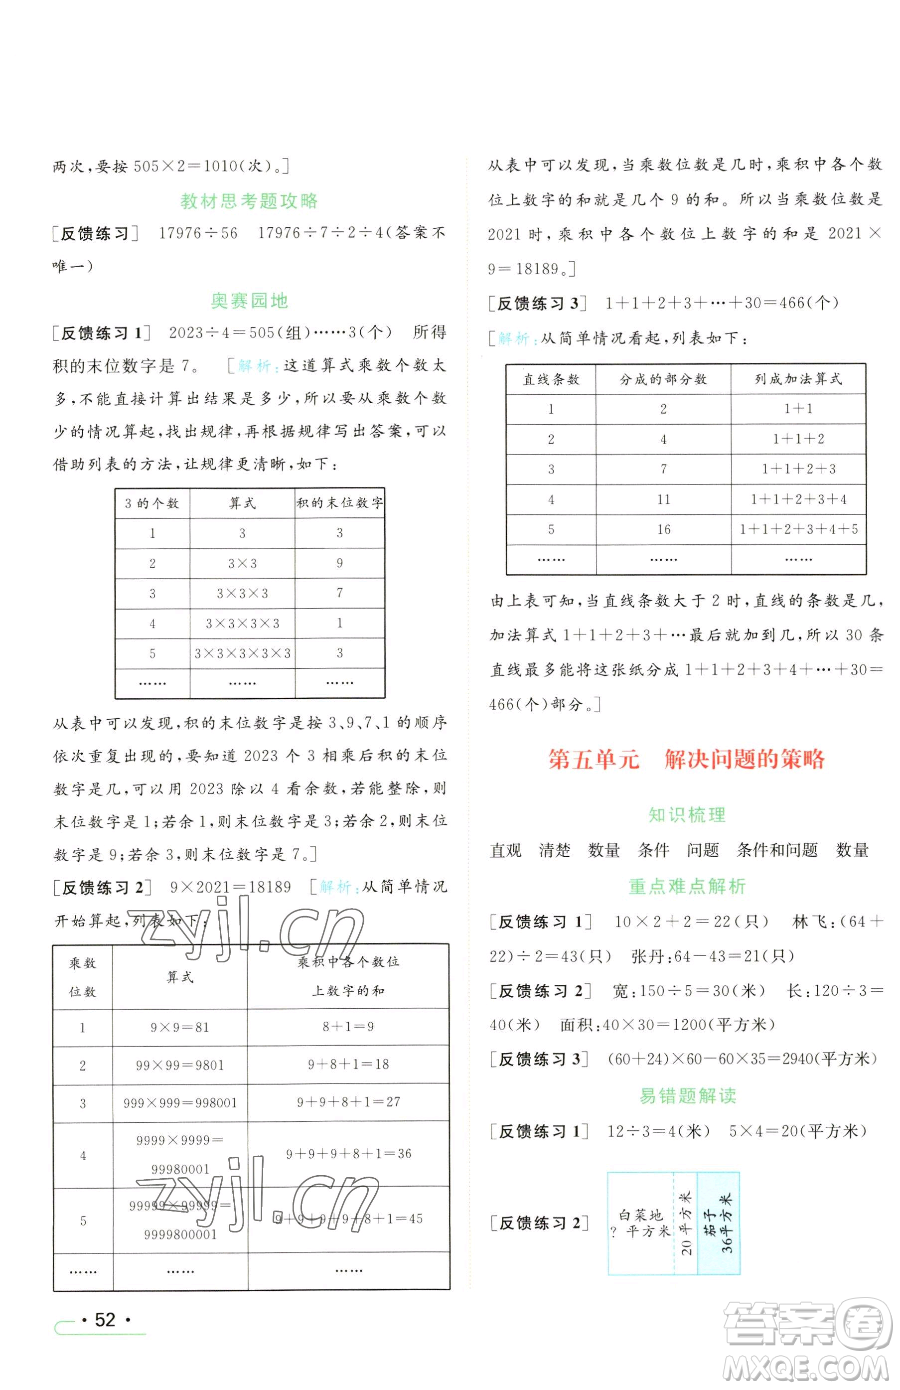 两次,要按 505×2=1010(次)。]
教材思考题攻略
[反馈练习] 17976÷56 17976÷7÷2÷4(答案不
唯一)
奥赛园地
[反馈练习 1] 2023÷4=505(组)……3(个) 所得
积的末位数字是 7。 [解析:这道算式乘数个数太
多,不能直接计算出结果是多少,所以从乘数个数
少的情况算起,找出规律,再根据规律写出答案,可以
借助列表的方法,让规律更清晰,如下:
3 的个数 算式 积的末位数字
1 3 3
2 3×3 9
3 3×3×3 7
4 3×3×3×3 1
5 3×3×3×3×3 3
…… …… ……
从表中可以发现,积的末位数字是按 3、9、7、1 的顺序
依次重复出现的,要知道 2023 个 3 相乘后积的末位
数字是几,可以用 2023 除以 4 看余数,若能整除,则
末位数字是 1;若余 1,则末位数字是 3;若余 2,则末位
数字是 9;若余 3,则末位数字是 7。]
[反馈练习 2] 9×2021=18189 [解析:从简单情况
开始算起,列表如下:
乘数
位数 算式 乘积中各个数位
上数字的和
1 9×9=81 8+1=9
2 99×99=9801 9+8+1=18
3 999×999=998001 9+9+8+1=27
4 9999×9999=
99980001 9+9+9+8+1=36
5 99999×99999=
9999800001 9+9+9+9+8+1=45
…… …… ……
· 52 ·
从表中可以发现,当乘数位数是几时,乘积中各个数
位上数字的和就是几个 9 的和。所以当乘数位数是
2021 时,乘积中各个数位上数字的和是 2021×
9=18189。]
[反馈练习 3] 1+1+2+3+…+30=466(个)
[解析:从简单情况看起,列表如下:
直线条数 分成的部分数 列成加法算式
1 2 1+1
2 4 1+1+2
3 7 1+1+2+3
4 11 1+1+2+3+4
5 16 1+1+2+3+4+5
…… …… ……
由上表可知,当直线条数大于 2 时,直线的条数是几,
加法算式 1+1+2+3+…最后就加到几,所以 30 条
直线最多能将这张纸分成 1+1+2+3+…+30=
466(个)部分。]
第五单元 解决问题的策略
知识梳理
直观 清楚 数量 条件 问题 条件和问题 数量
重点难点解析
[反馈练习 1] 10×2+2=22(只) 林飞:(64+
22)÷2=43(只) 张丹:43-22=21(只)
[反馈练习 2] 宽:150÷5=30(米) 长:120÷3=
40(米) 面积:40×30=1200(平方米)
[反馈练习 3] (60+24)×60-60×35=2940(平方米)
易错题解读
[反馈练习 1] 12÷3=4(米) 5×4=20(平方米)
[反馈练习 2]
白菜地
? 平方米
20 平方米
茄子
36平方米
zyjl.cn
zyjl.cn
答案圈
MXQE.COM